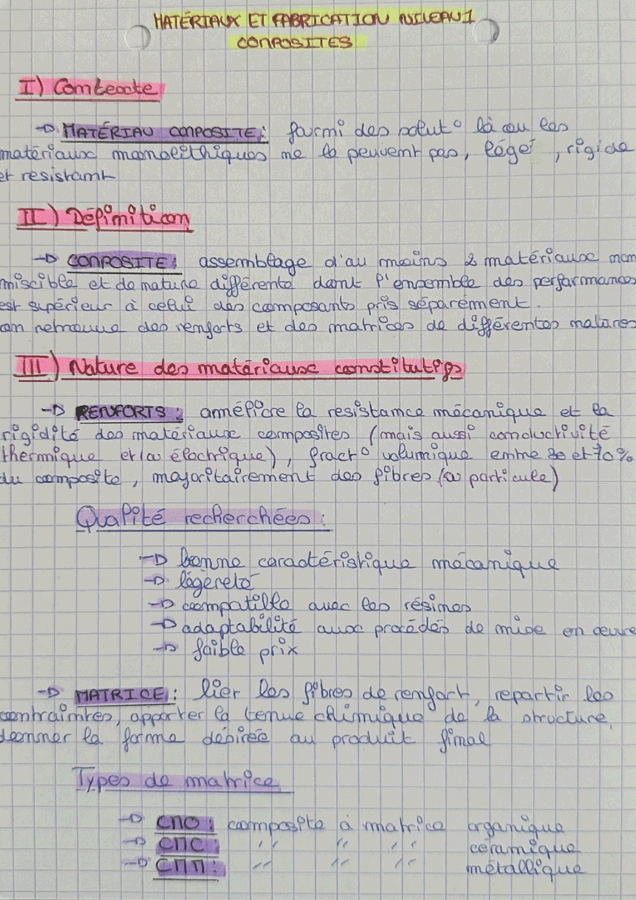 MATÉRIAUX ET FABRICATION NIVEAU 1
COMPOSITES
I) Contexte
→ MATÉRIAU COMPOSITE : parmi des solut° là où les
matériaux monolithiques ne le peuvent pas, légé, rigide
et resistant
II) Définition
→ COMPOSITE : assemblage d'au moins 2 matériaux non
miscible et de nature différente dont l'ensemble des performances
est supérieur à celui des composants pris séparément.
on retrouve des renforts et des matrices de différentes natures
III) Nature des matériaux constitutifs
→ RENFORTS : amméliore la resistance mécanique et la
rigidité des matériaux composites (mais aussi conductivité
thermique et/ou électrique), fract° volumique entre 30 et 70%
du composite, majoritairement des fibres (ou particule)
Qualité recherchées :
→ bonne caractéristique mécanique
→ légèreté
→ compatible avec les résines
→ adaptabilité aux procédés de mise en œuvre
→ faible prix
→ MATRICE : lier les fibres de renfort, repartir les
contraintes, apporter la tenue chimique de la structure,
donner la forme désirée au produit final
Types de matrice
→ CMO : composite à matrice organique
→ CMC : '' '' '' céramique
→ CMM : '' '' '' métallique